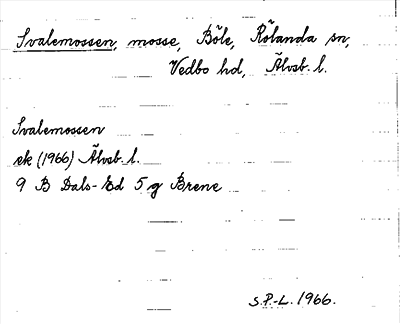 Svalemossen, mosse, Böle, Rölanda sn,
Vedbo hd, Älvsb. l.
Svalemossen
ek (1966) Älvsb. l.
9 B Dals-Ed 5 g Brene
S.P.-L. 1966.